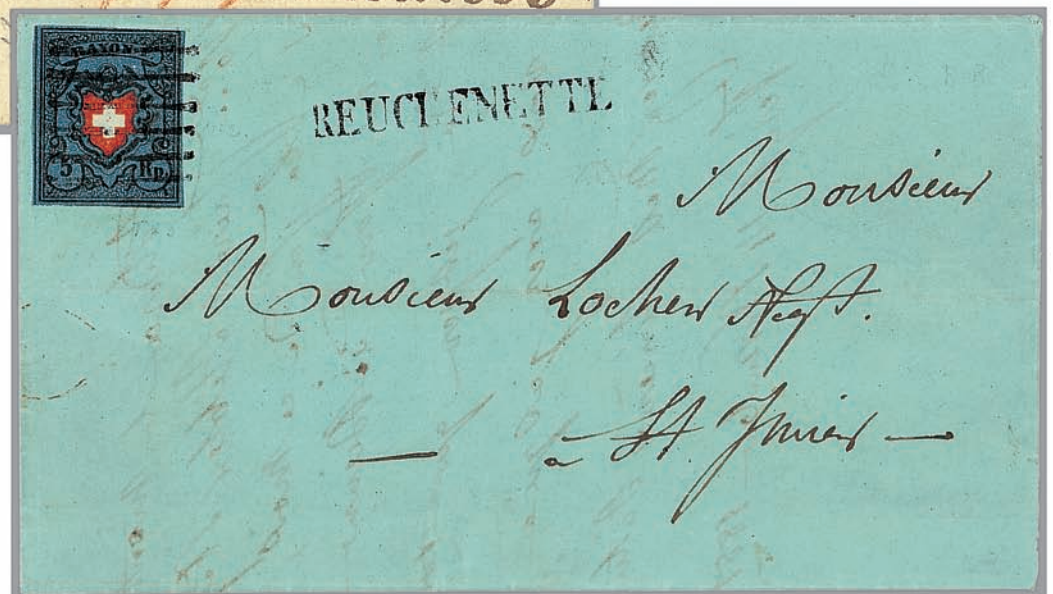 RAYON I
5 Rp.
REUCHENETTE
Monsieur
Monsieur Locher Negt.
à St Imier